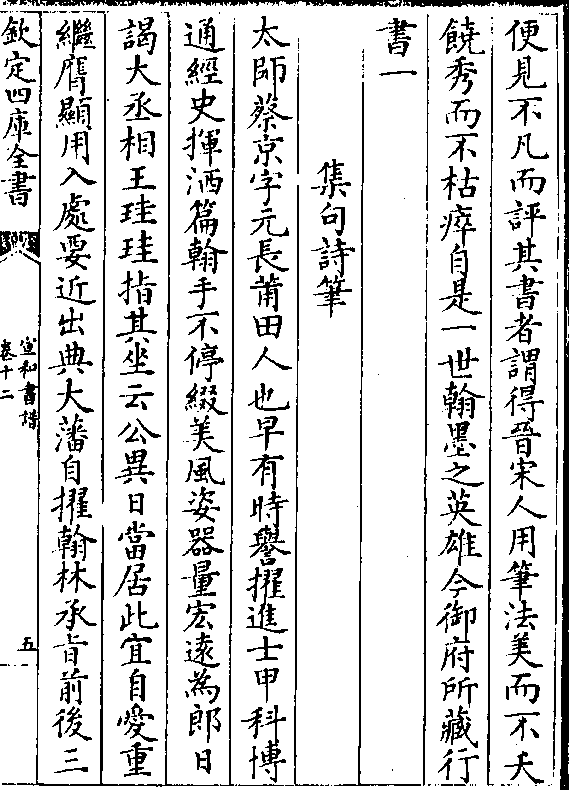 便見不凡而評其書者謂得晉宋人用筆法美而不夭
饒秀而不枯瘁自是一世翰墨之英雄今御府所藏行
書一
集句詩筆
太師蔡京字元長莆田人也早有時譽擢進士甲科博
通經史揮洒篇翰手不停綴美風姿器量宏遠為郎日
謁大丞相王珪珪指其坐云公異日當居此宜自愛重
繼膺顯用入處要近出典大藩自擢翰林承旨前後三
欽定四庫全書
宣和書譜
卷十二
五